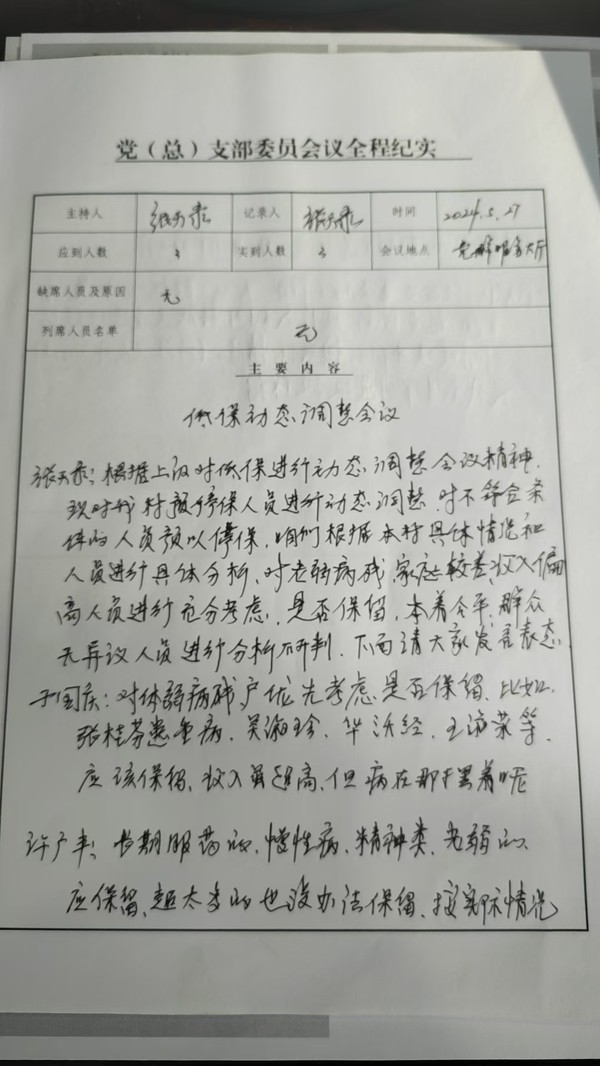 党（总）支部委员会议全程纪实
主持人 张天录 记录人 张天录 时间 2024.5.27
应到人数 3 实到人数 3 会议地点 党群服务大厅
缺席人员及原因 无
列席人员名单 无
主要内容
低保动态调整会议
张天录：根据上级对低保进行动态调整会议精神.
现对我村报停保人员进行动态调整.对不符合条
件的人员予以停保.咱们根据本村具体情况和
人员进行具体分析.对老弱病残.家庭较差.收入偏
高人员进行充分考虑.是否保留.本着公平.群众
无异议人员进行分析研判.下面请大家发言表态.
于国庆：对体弱病残户优先考虑是否保留.比如.
张桂芬患重病.吴淑珍.华沃经.王海荣等.
应该保留.收入虽超高.但病在那干摆着呢
许广丰：长期服药的.慢性病.精神类.老弱的.
应保留.超太多的也没办法保留.按实际情况